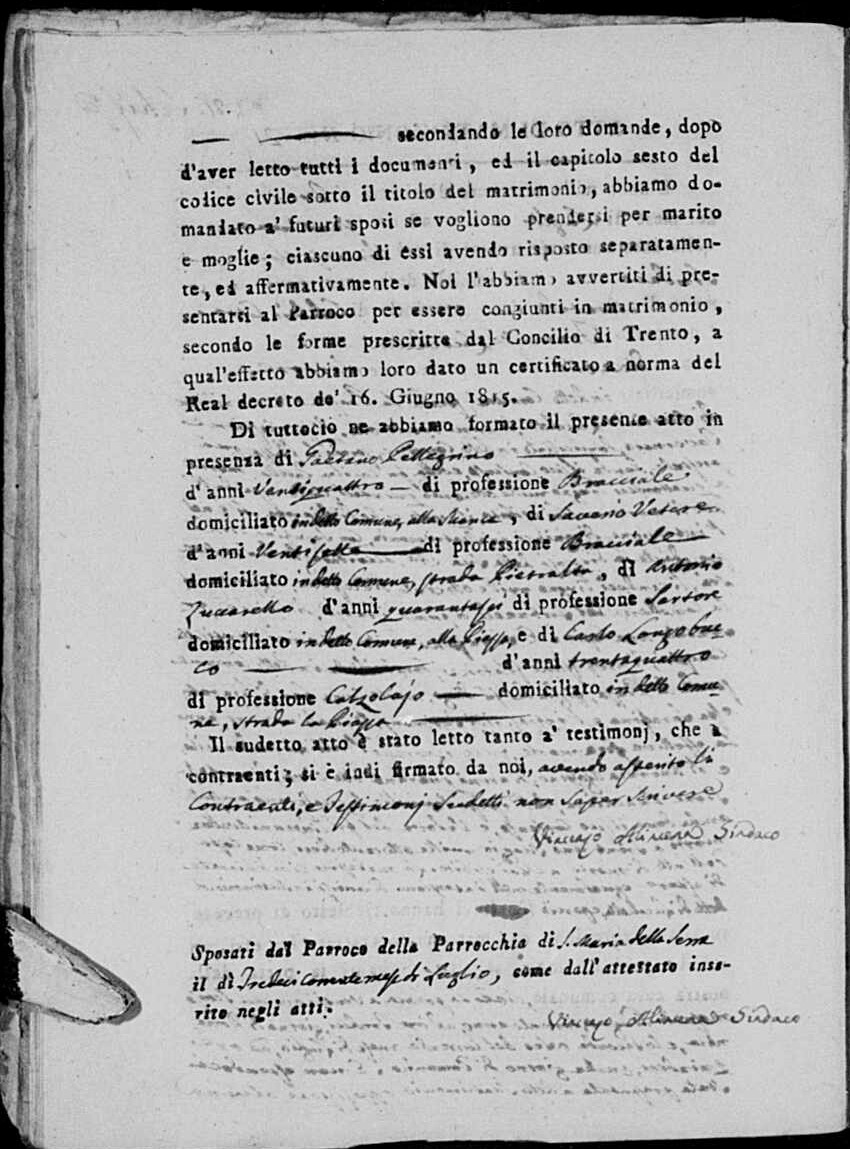 secondando le loro domande, dopo
d'aver letto tutti i documenti, ed il capitolo sesto del
codice civile sotto il titolo del matrimonio, abbiamo do-
mandato a' futuri sposi se vogliono prendersi per marito
e moglie; ciascuno di essi avendo risposto separatamen-
te, ed affermativamente. Noi l'abbiamo avvertiti di pre-
sentarsi al Parroco per essere congiunti in matrimonio,
secondo le forme prescritte dal Concilio di Trento, a
qual'effetto abbiamo loro dato un certificato a norma del
Real decreto de' 16. Giugno 1815.
Di tuttociò ne abbiamo formato il presente atto in
presenza di Gaetano Pellegrino
d'anni Ventiquattro di professione Bracciale
domiciliato in detto Comune, alla , di Saverio Vetere
d'anni Ventisette di professione Bracciale
domiciliato in detto Comune, strada Pietralta, di Antonio
Zuccarello d'anni quarantasei di professione Sartore
domiciliato in detto Comune, alla Piazza, e di Carlo Longobuc-
co d'anni trentaquattro
di professione Calzolajo domiciliato in detto Comu-
ne, strada la Piazza
Il sudetto atto è stato letto tanto a' testimonj, che a
contraenti; si è indi firmato da noi, avendo asserito li
Contraenti, e Testimonj Sudetti non Saper Scrivere
Sindaco
Sposati dal Parroco della Parrocchia di S. Maria della Serra
il dì Tredici corrente mese di Luglio, come dall'attestato inse-
rito negli atti.
Sindaco